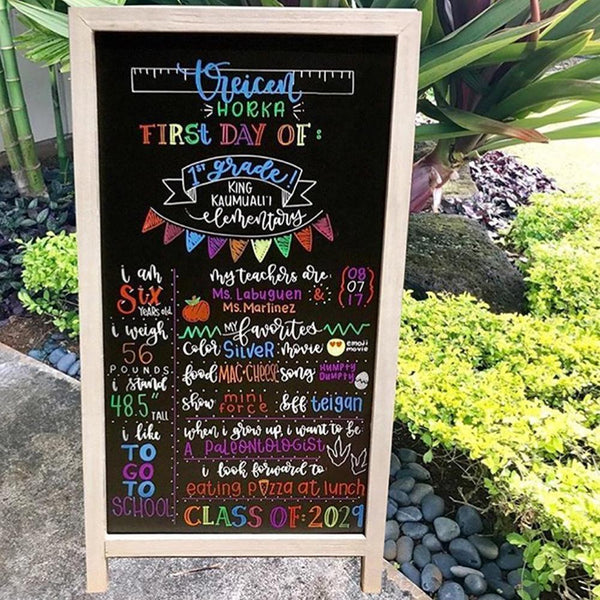 Creicen
HORKA
FIRST DAY OF:
1st grade!
KING
KAUMUALI'I
elementary
i am
SIX
YEARS old
i weigh
56
POUNDS
i stand
48.5" TALL
i like
TO
GO
TO
SCHOOL
my teachers are:
Ms. Labuguen &
Ms. Martinez
08
07
17
MY favorites
color SILVER movie emoji movie
food MAC-CHEESE song HUMPTY DUMPTY
show mini force bff teigan
when i grow up, i want to be
A PALEONTOLOGIST
i look forward to
eating pizza at lunch
CLASS OF: 2029